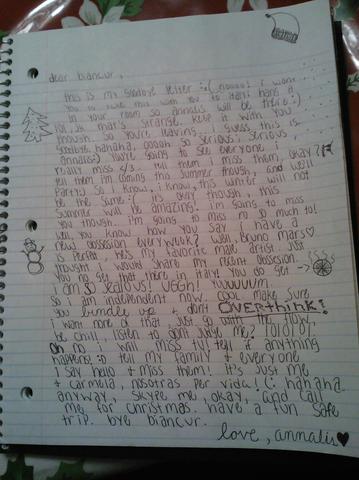 dear biancur,
this is my goodbye letter :( noooo! i want
you to take this with you to Italy! hang it
in your room so annalis will be there :)
lol, ok that's strange. keep it with you
though. so you're leaving... i guess this is
goodbye. hahaha, ooooh so serious, serious
annalis:) you're going to see everyone i
really miss </3. tell them i miss them, okay?
tell them i'm coming this summer though, and we'll
party! so i know, i know, this winter will not
be the same :( it's okay though, this
summer will be amazing! i'm going to miss
you though. i'm going to miss you so much too!
well you know how you say i have a
new obsession every week? well, bruno mars♡
is perfect, he's my favorite male artist. just
thought i would share my recent obsession.
you no get pizza there in italy! you do get →
i am so jealous! uggh! yuuuuum.
so i am independent now. cool. make sure
you bundle up + don't OVERthink!
i want none of that, just go with the flow,
be chill, listen to don't judge me! lololol:
oh no i will miss ty! tell if anything
happens :) tell my family + everyone
I say hello + miss them! it's just me
+ carmela, nosotras per vida! (: hahaha.
anyway, skype me, okay, and call
me for christmas. have a fun safe
trip. bye biancur.
love, annalis♥